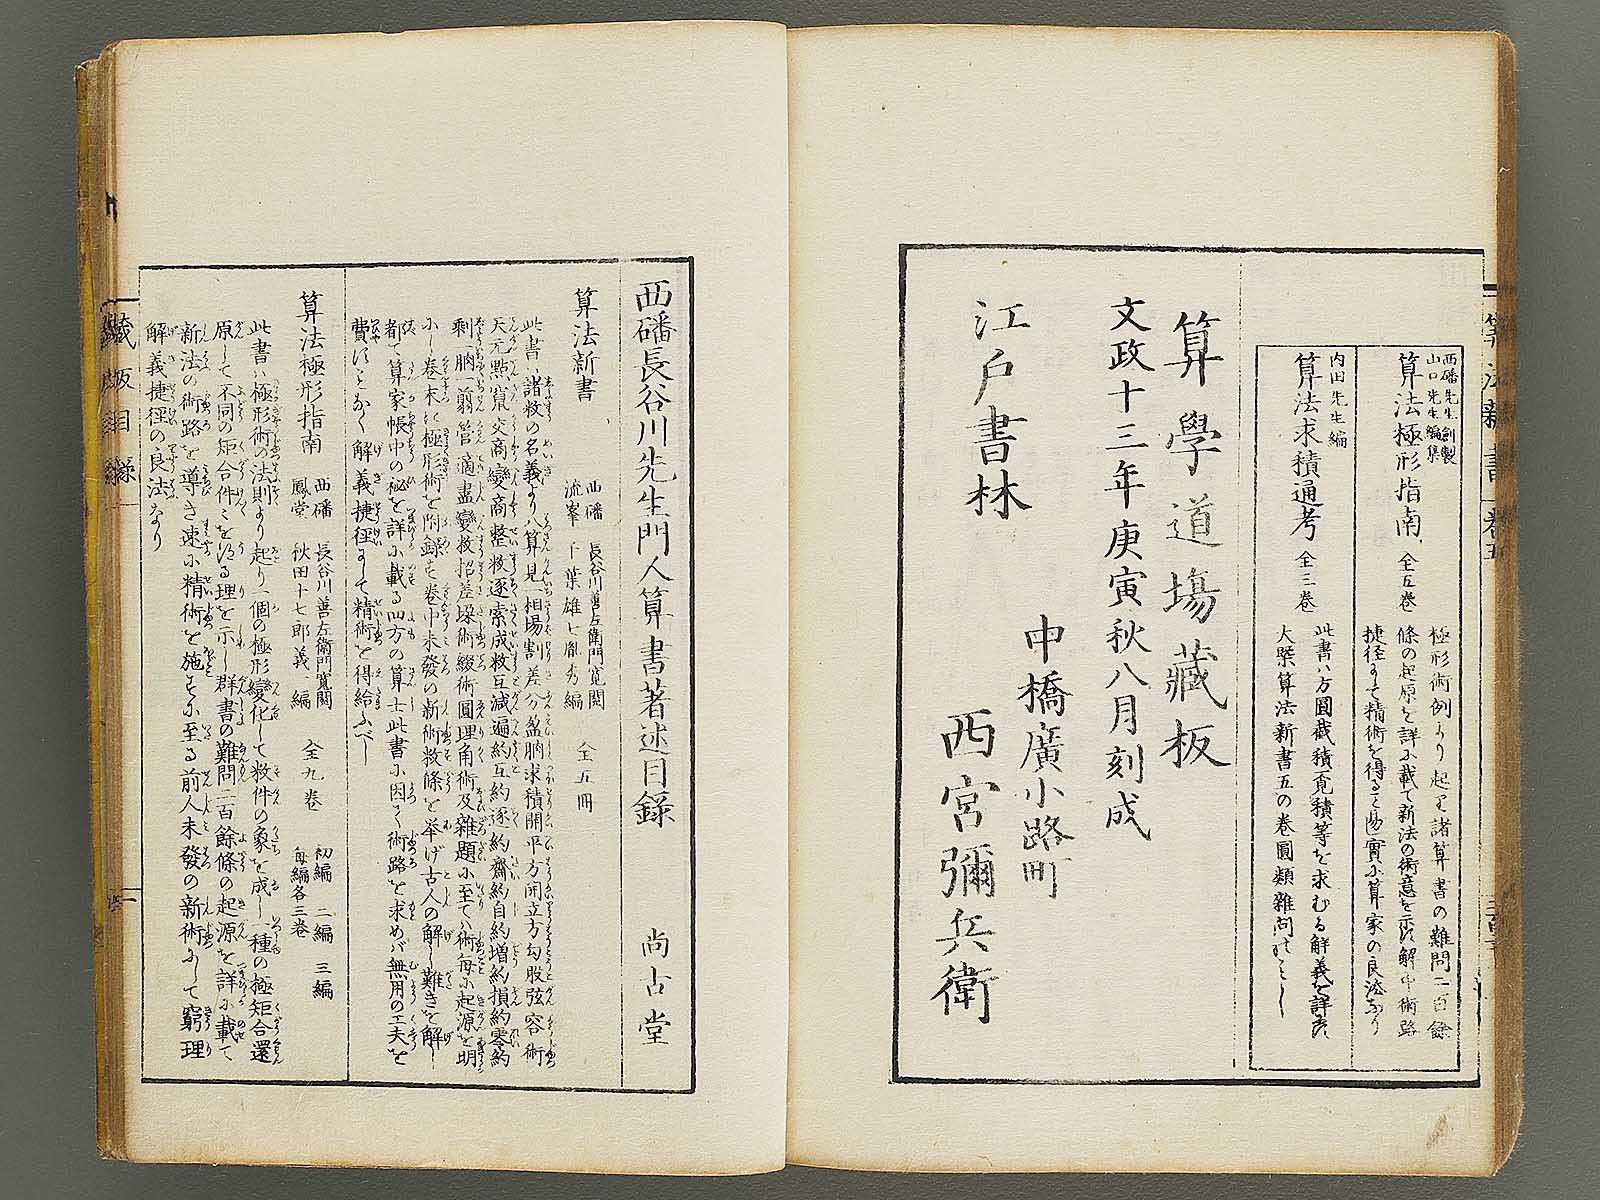 算法新書 卷五
西磻先生創製
山口先生編集
算法極形指南 全五卷
極形術例より起り諸算書の難問二百餘
條の起原を詳に載て新法の術意を示す解中術路
捷径にて精術を得る事易し實に算家の良法なり
内田先生編
算法求積通考 全三卷
此書ハ方圓截積覓積等を求むる解義を詳にす
大槩算法新書五の卷圓類雜問のごとし
算學道塲藏板
文政十三年庚寅秋八月刻成
江戸書林
中橋廣小路町
西宮彌兵衛
西磻長谷川先生門人算書著述目錄 尚古堂
算法新書
西磻 長谷川善左衛門寛閲
流峯 千葉雄七胤秀編
全五冊
此書ハ諸救の名義より八算見一相塲割差分盈朒求積開平方開立方勾股弦容術
天元點竄交商變商整救逐索成救互減遍約互約逐約齋約自約増約損約零約
剰一朒一翦管適盡變救招差垜術綴術圓理角術及雜題に至てハ術毎に起源を明
にし卷末に極形術を附録す卷中未發の新術救條を举げ古人の解し難きを解し
都て算家帳中の秘を詳に載る四方の算士此書に因て術路を求めバ無用の工夫を
費すことなく解義捷徑にして精術を得給ふべし
算法極形指南
西磻 長谷川善左衛門寛閲
鳳堂 秋田十七郎義一編
全九卷
初編 二編 三編
毎編各三卷
此書ハ極形術の法則より起り一個の極形變化して救件の象を成し一種の極矩合還
原して不同の矩合件々を得る理を示し群書の難問二百餘條の起源を詳に載て
新法の術路を導き速に精術を施すに至る前人未發の新術にして窮理
解義捷徑の良法なり
藏板目錄